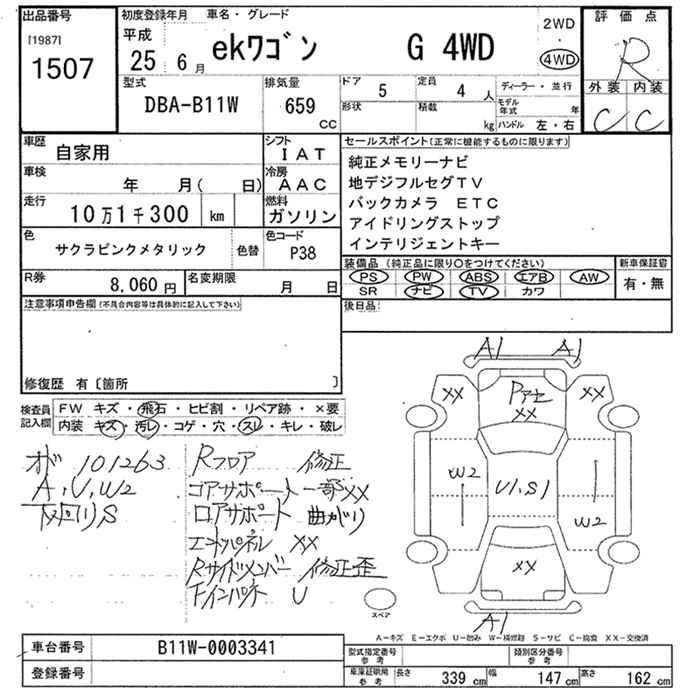 出品番号
[1987]
1507
初度登録年月 車名・グレード
平成
25 6月 ekワゴン G 4WD
2WD
・
4WD
評価点
R
外装 内装
C C
型式 排気量 ドア 定員 ディーラー・並行
DBA-B11W 659 CC 5 4 人
形状 積載 kg
モデル年式 年
ハンドル 左・右
車歴 自家用 シフト IAT
車検 年 月( 日) 冷房 AAC
走行 10万1千300 km 燃料 ガソリン
色 サクラピンクメタリック 色替 色コード P38
R券 8,060円 名変期限 月 日
セールスポイント(正常に機能するものに限ります)
純正メモリーナビ
地デジフルセグTV
バックカメラ ETC
アイドリングストップ
インテリジェントキー
装備品(純正品に限り○をつけてください) 新車保証書
PS PW ABS エアB AW 有・無
SR ナビ TV カワ
後日品
注意事項申告欄(不具合内容等は具体的に記入して下さい)
修復歴 有〔箇所 〕
検査員 FW キズ・飛石・ヒビ割・リペア跡・×要
記入欄 内装 キズ・汚レ・コゲ・穴・スレ・キレ・破レ
オド 101263
A,U,W2
下廻りS
Rフロア 修正
コアサポート一部XX
ロアサポート 曲がり
エンドパネル XX
Rサイドメンバー 修正歪
Fインパネ U
A1 A1
XX Pアセ XX
XX
W2 U1,S1
W2
XX
A1
スペア
A-キズ E-エクボ U-凹み W-補修跡 S-サビ C-腐食 XX-交換済
車台番号 B11W-0003341
登録番号
型式指定番号 参考 類別区分番号 参考
車庫証明用 参考 長さ 339 cm 幅 147 cm 高さ 162 cm